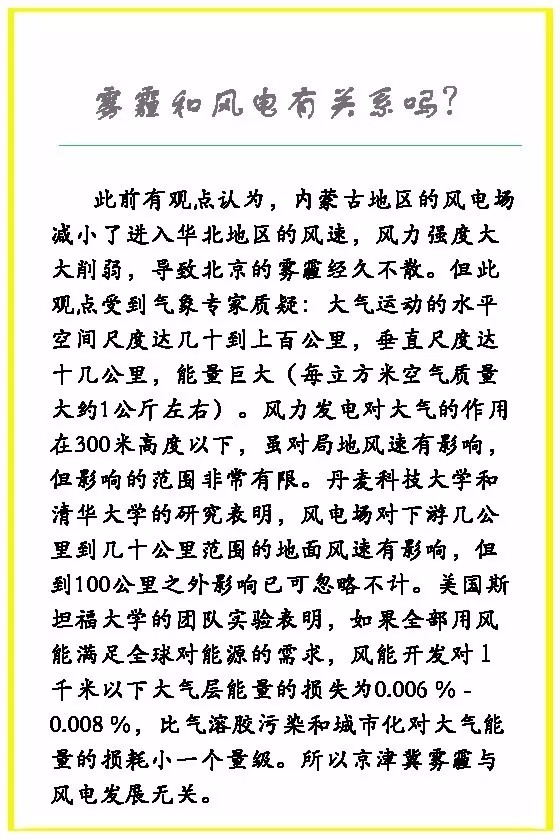 雾霾和风电有关系吗?
此前有观点认为，内蒙古地区的风电场
减小了进入华北地区的风速，风力强度大
大削弱，导致北京的雾霾经久不散。但此
观点受到气象专家质疑：大气运动的水平
空间尺度达几十到上百公里，垂直尺度达
十几公里，能量巨大（每立方米空气质量
大约1公斤左右）。风力发电对大气的作用
在300米高度以下，虽对局地风速有影响，
但影响的范围非常有限。丹麦科技大学和
清华大学的研究表明，风电场对下游几公
里到几十公里范围的地面风速有影响，但
到100公里之外影响已可忽略不计。美国斯
坦福大学的团队实验表明，如果全部用风
能满足全球对能源的需求，风能开发对1
千米以下大气层能量的损失为0.006 % -
0.008 %，比气溶胶污染和城市化对大气能
量的损耗小一个量级。所以京津冀雾霾与
风电发展无关。